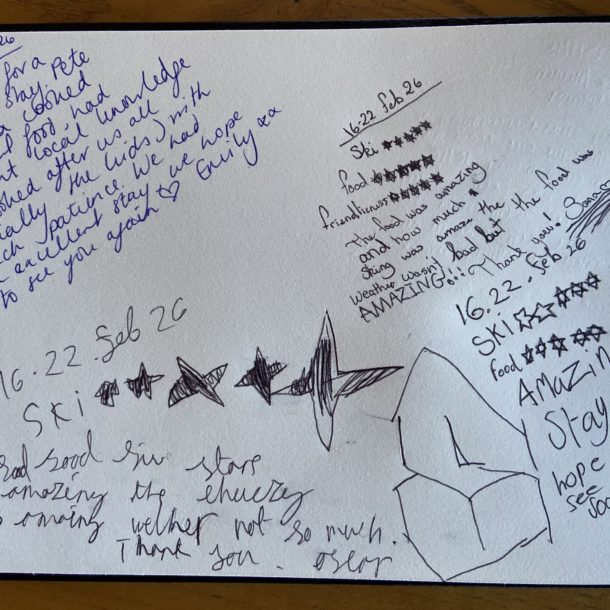 26
for a
stay. Pete
cooked
food, had
local knowledge
looked after us all
(the kids) with
patience. We had
excellent stay we hope
to see you again ♡ Emily xx
16-22 feb 26
Ski ★★★★★
food ★★★★★
friendlieness ★★★★★
The food was amazing
and how much
skiing was amaze the the food was
Weather wasn't bad but
AMAZING!!! Thank you!
16.22.feb 26
Ski ★★★★★
food ★★★★★
AMAZIN
Stay
hope
see
soo
16.22.feb 26
Ski ★★★★★
sood siv stars
amazing the
amaing wether not so much.
Thank you. oscar